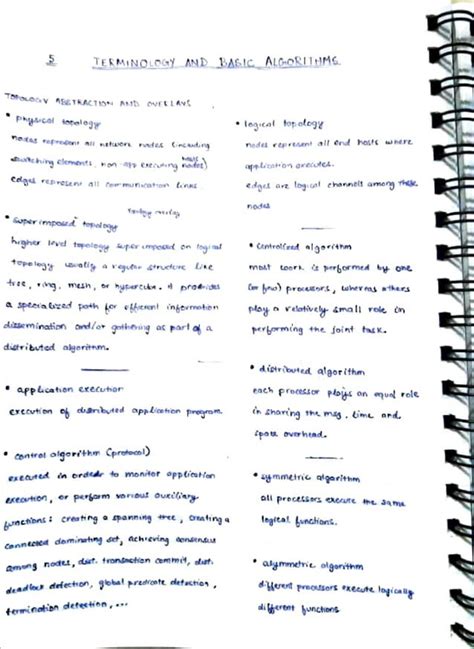 5 TERMINOLOGY AND BASIC ALGORITHMS
TOPOLOGY ABSTRACTION AND OVERLAYS
• physical topology
nodes represent all network nodes (including
switching elements, non-app executing nodes)
hosts
edges represent all communication links
Topology overlay
• superimposed topology
higher level topology superimposed on logical
topology usually a regular structure like
tree, ring, mesh, or hypercube. It provides
a specialized path for efficient information
dissemination and/or gathering as part of a
distributed algorithm.
• application execution
execution of distributed application program.
• control algorithm (protocol)
executed in order to monitor application
execution, or perform various auxiliary
functions: creating a spanning tree, creating a
connected dominating set, achieving consensus
among nodes, dist. transaction commit, dist.
deadlock detection, global predicate detection,
termination detection, ...
• logical topology
nodes represent all end hosts where
application executes.
edges are logical channels among these
nodes
• centralized algorithm
most work is performed by one
(or few) processors, whereas others
play a relatively small role in
performing the joint task.
• distributed algorithm
each processor plays an equal role
in sharing the msg, time and
space overhead.
• symmetric algorithm
all processors execute the same
logical functions.
• asymmetric algorithm
different processors execute logically
different functions